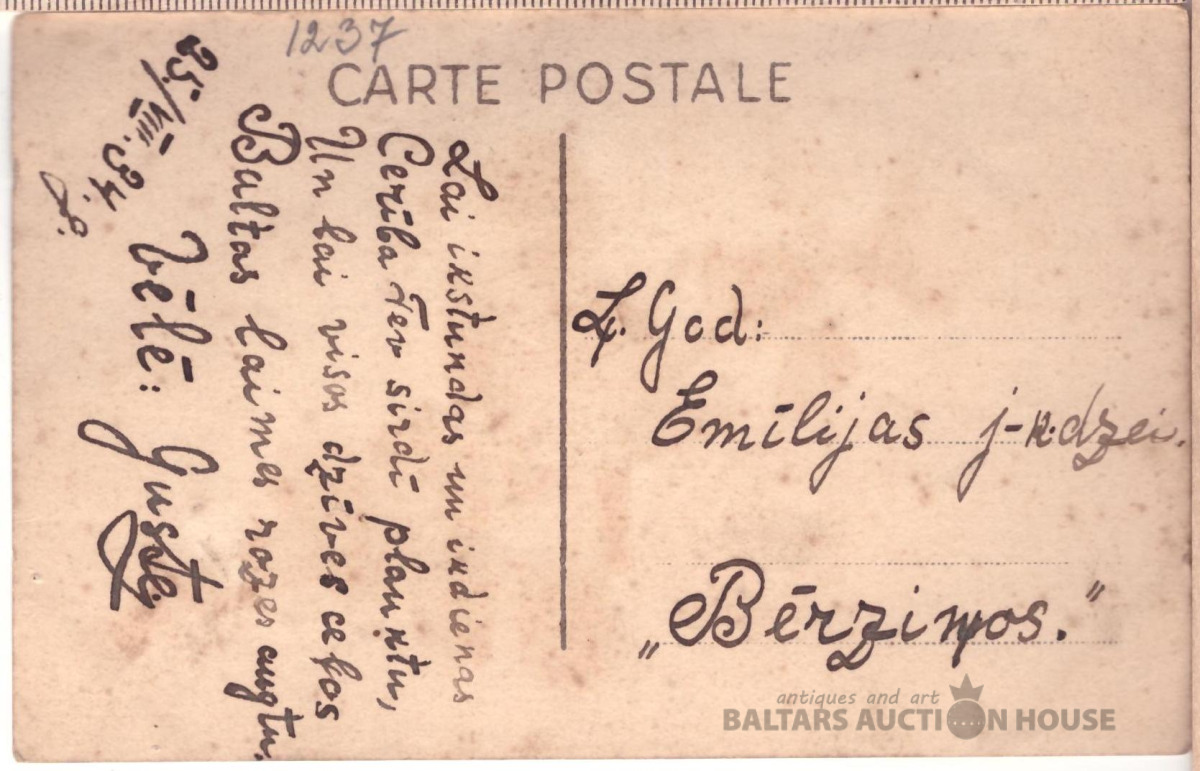 1237
CARTE POSTALE
Lai ikstundas un ikdienas
Cerība Tev sirdī plauktu,
Un lai visos dzīves ceļos
Baltas laimes rozes augtu.
Vēlē: Guste
25./VIII. 34
L. God:
Emīlijas j-kdzei.
„Bērziņos."
antiques and art
BALTARS AUCTION HOUSE